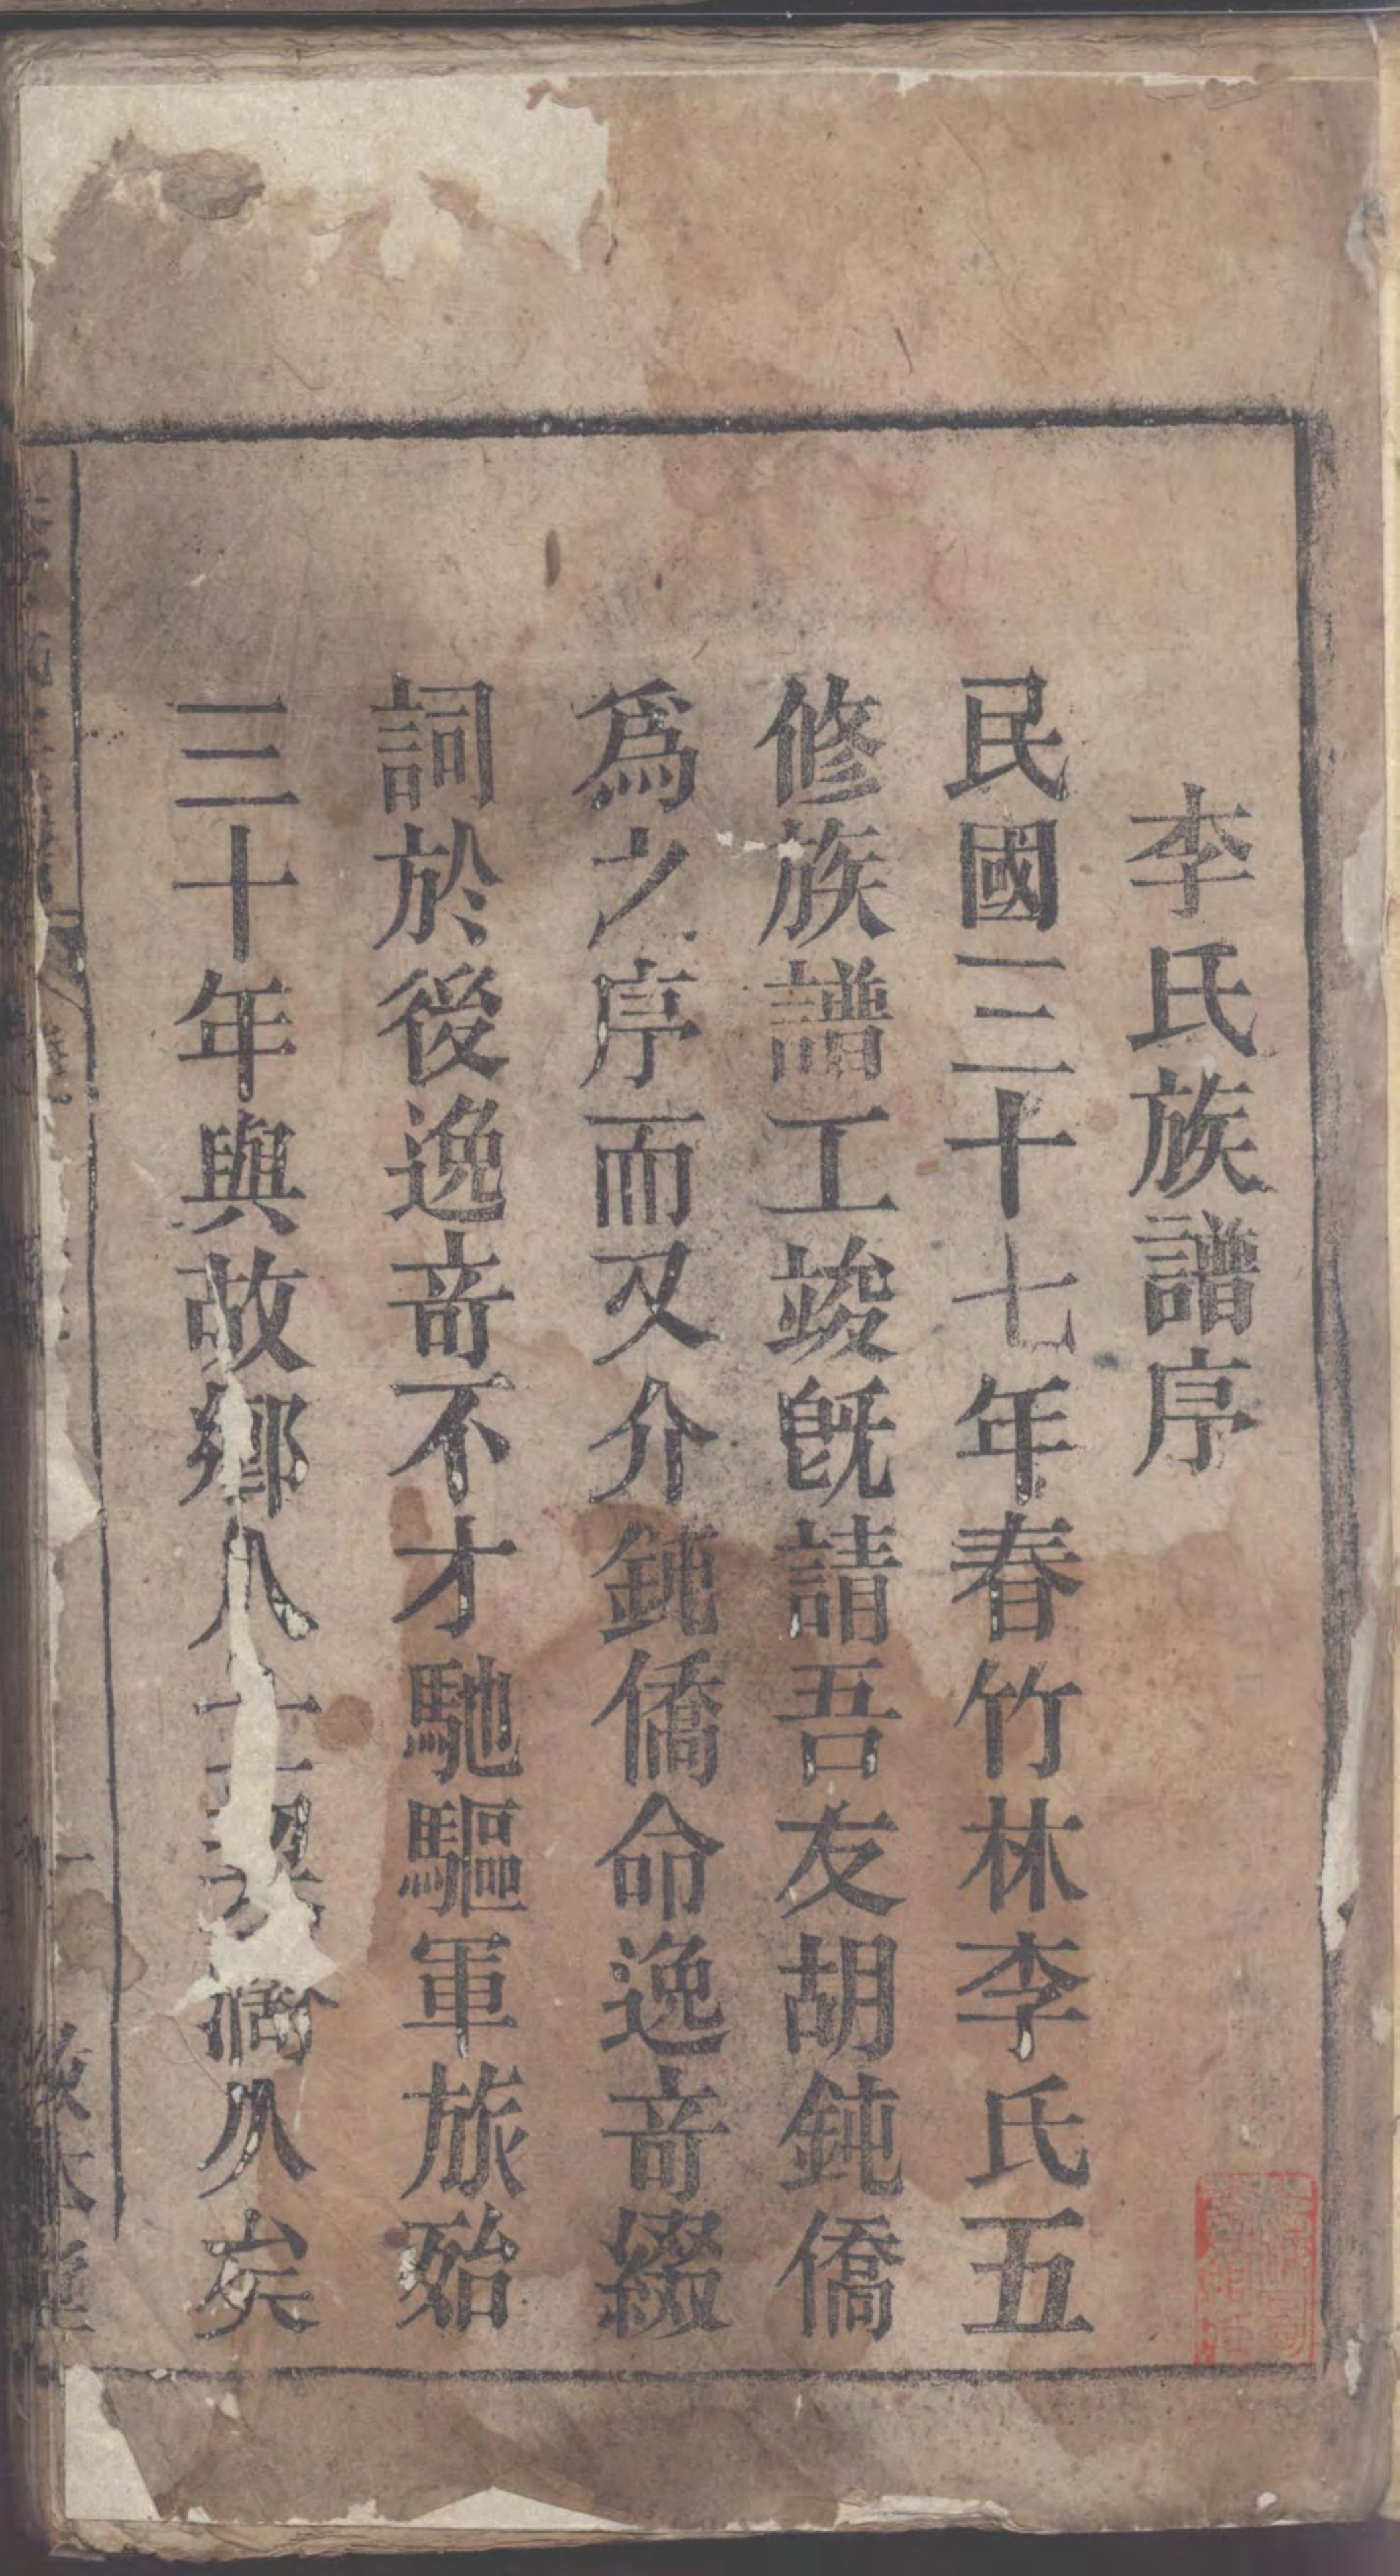 李氏族譜序
民國三十七年春竹林李氏五
修族譜工竣旣請吾友胡鈍僑
爲之序而又介鈍僑命逸竒綴
詞於後逸竒不才馳驅軍旅殆
三十年與故鄉人士契濶久矣